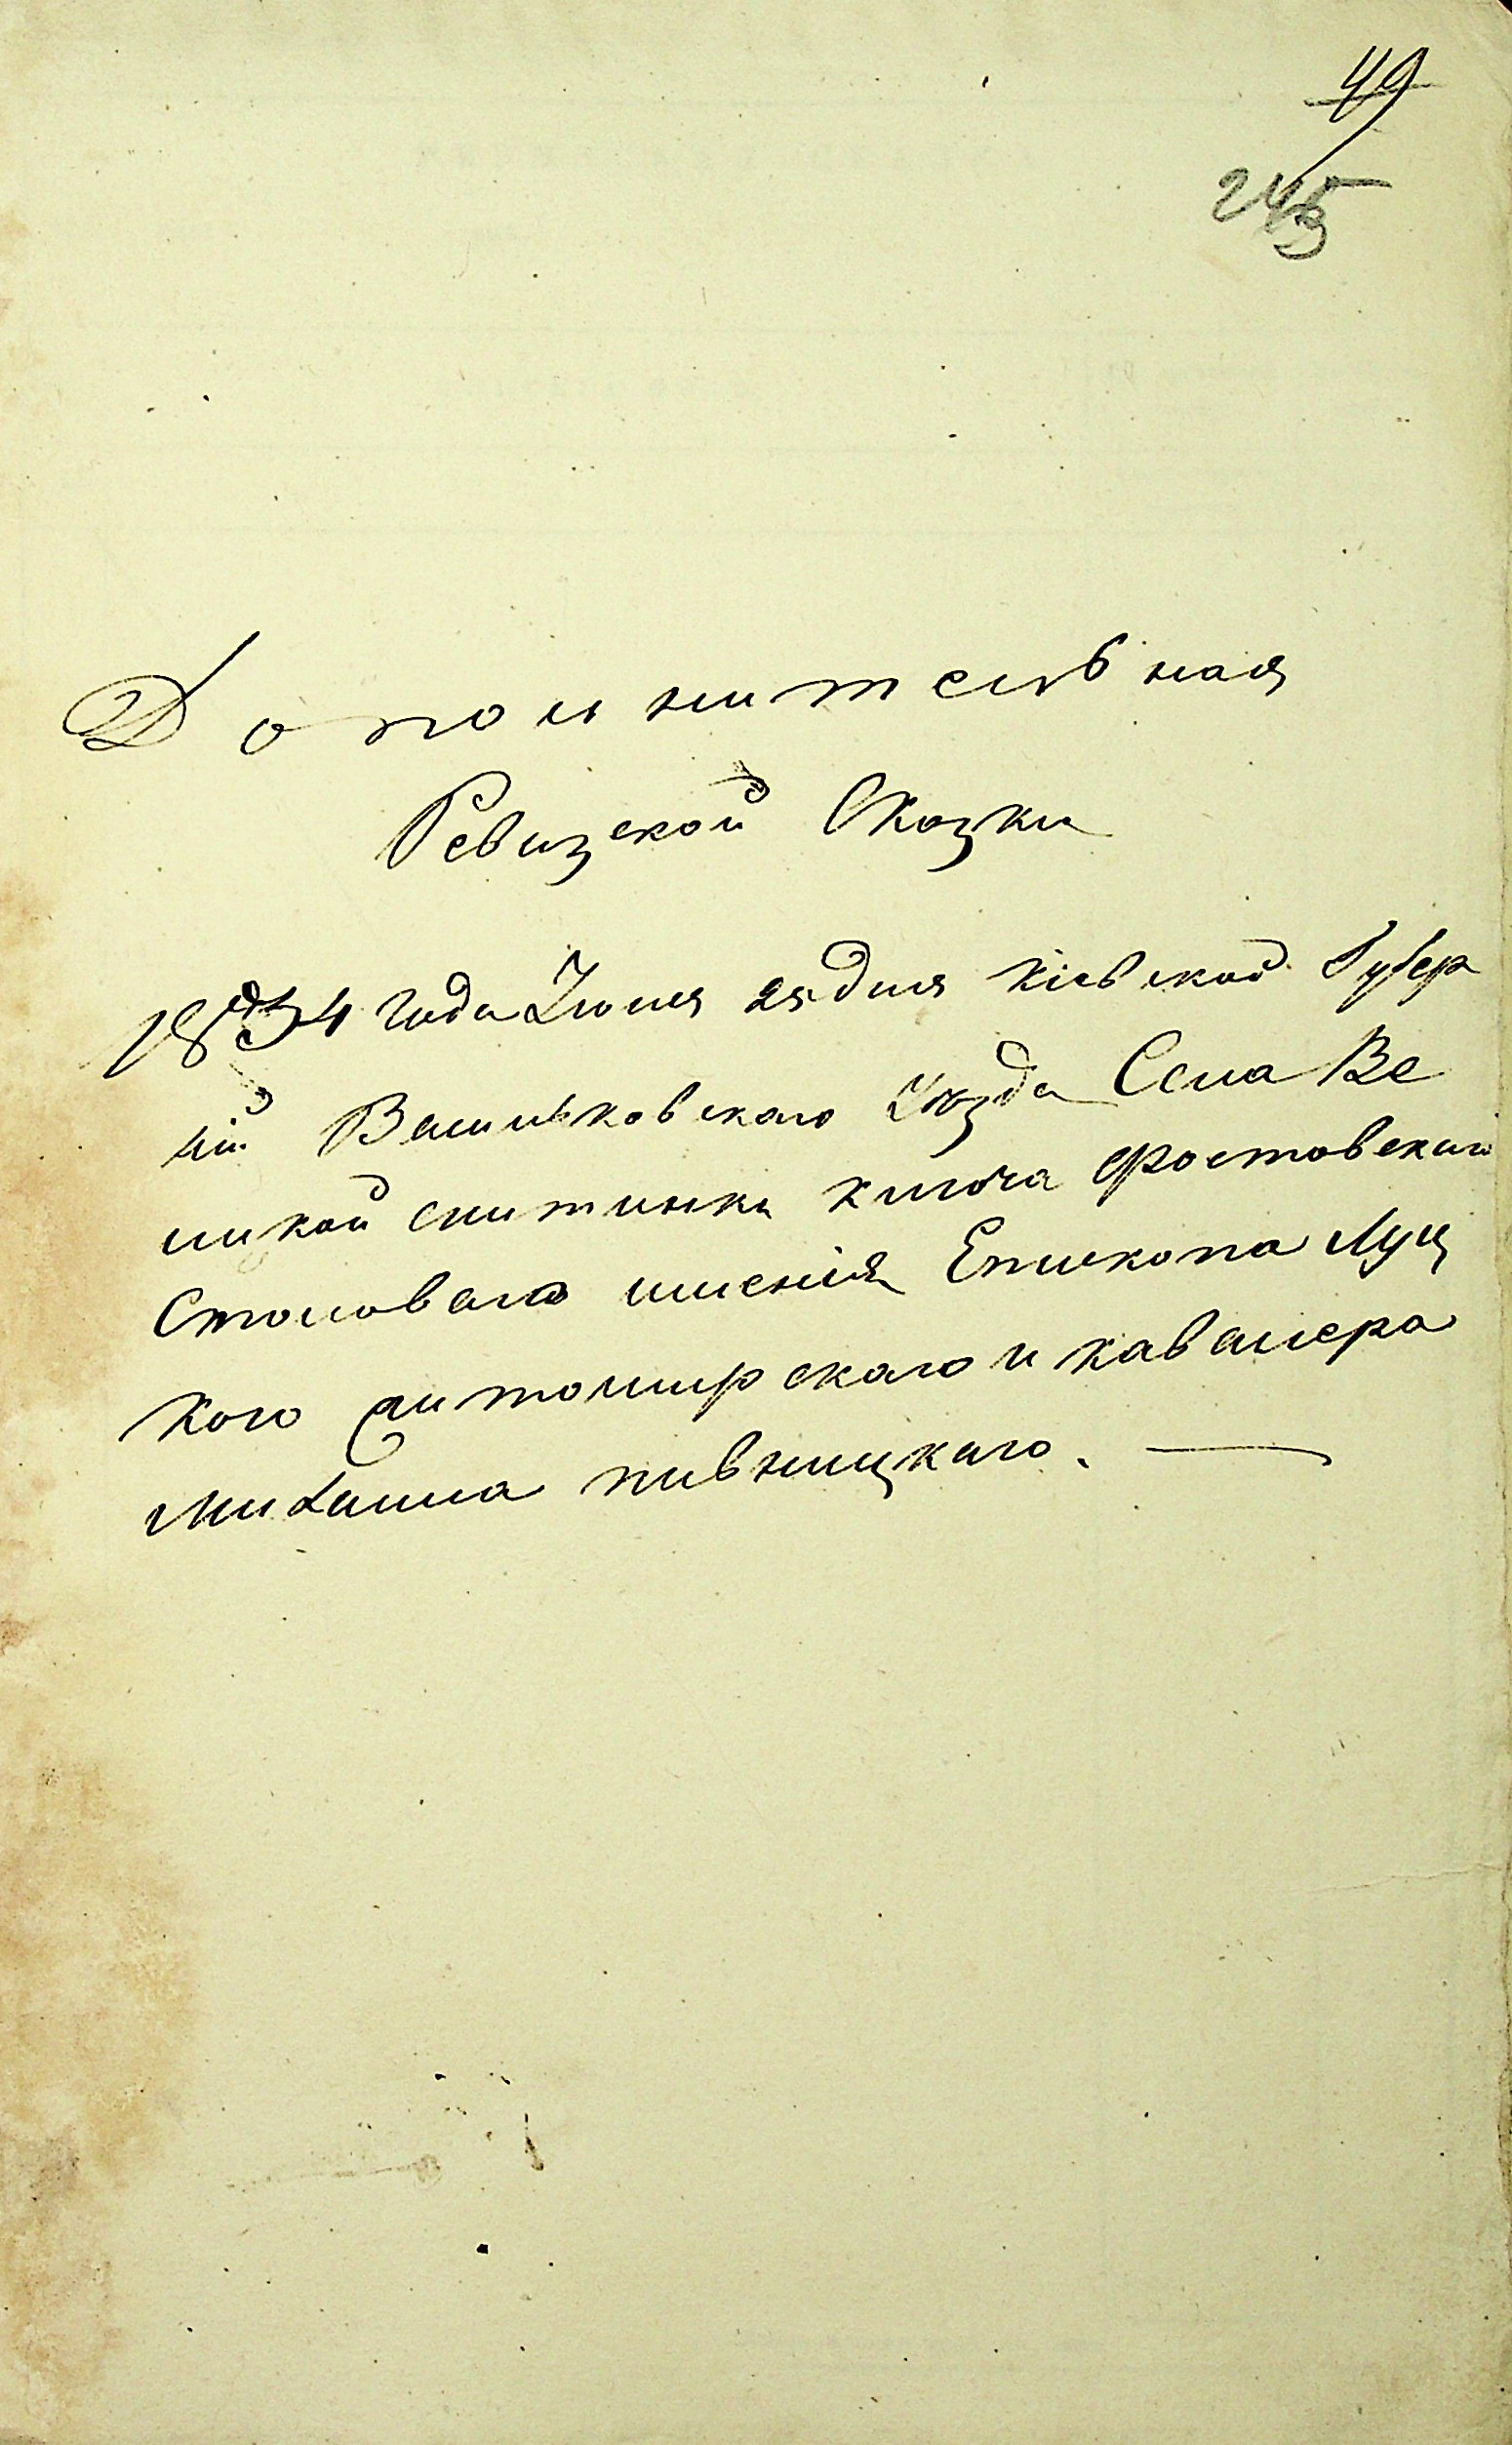 49
245
Дополнительная
Ревизской Сказки
1834 года Июня 25 дня Кіевской Губер
ніи Васильковскаго Уезда Села Ве
ликой снитинки ключа фостовскаго
Столоваго имения Епископа Луц
кого Житомирскаго и кавалера
Михаила пивницкаго.